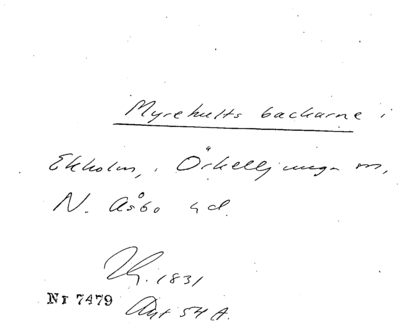 Myrehults backarne i
Ekholm, i Örkelljunga sn,
N. Åsbo hd.
1831
Nr 7479
Ant 54 A.